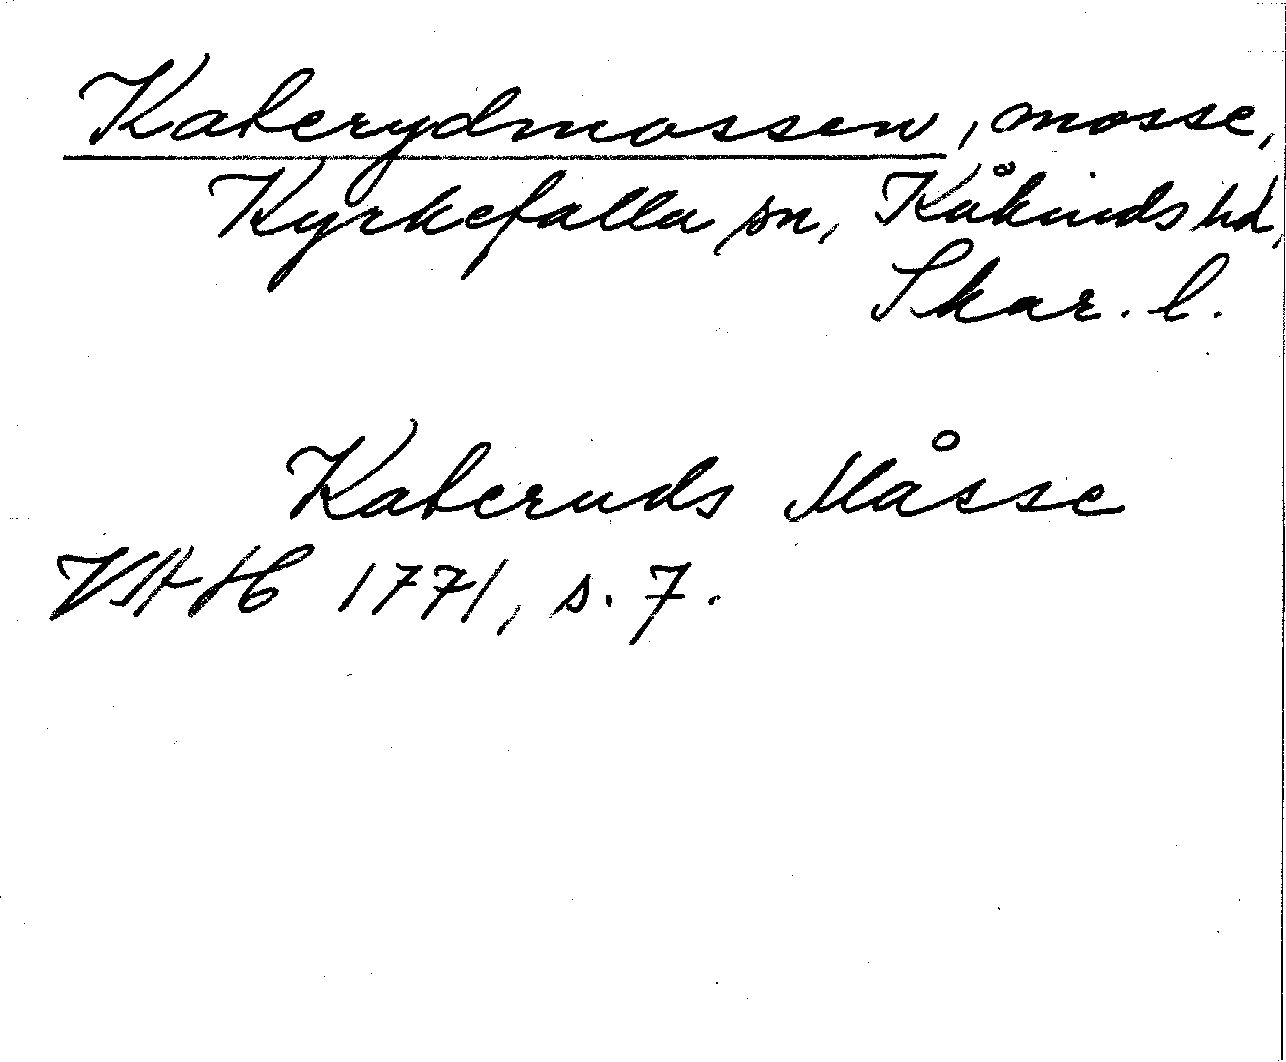 Kaberydmossen, mosse,
Kyrkefalla sn, Kåkinds hd,
Skar. l.
Kaberuds Måsse
VStH 1771, s. 7.